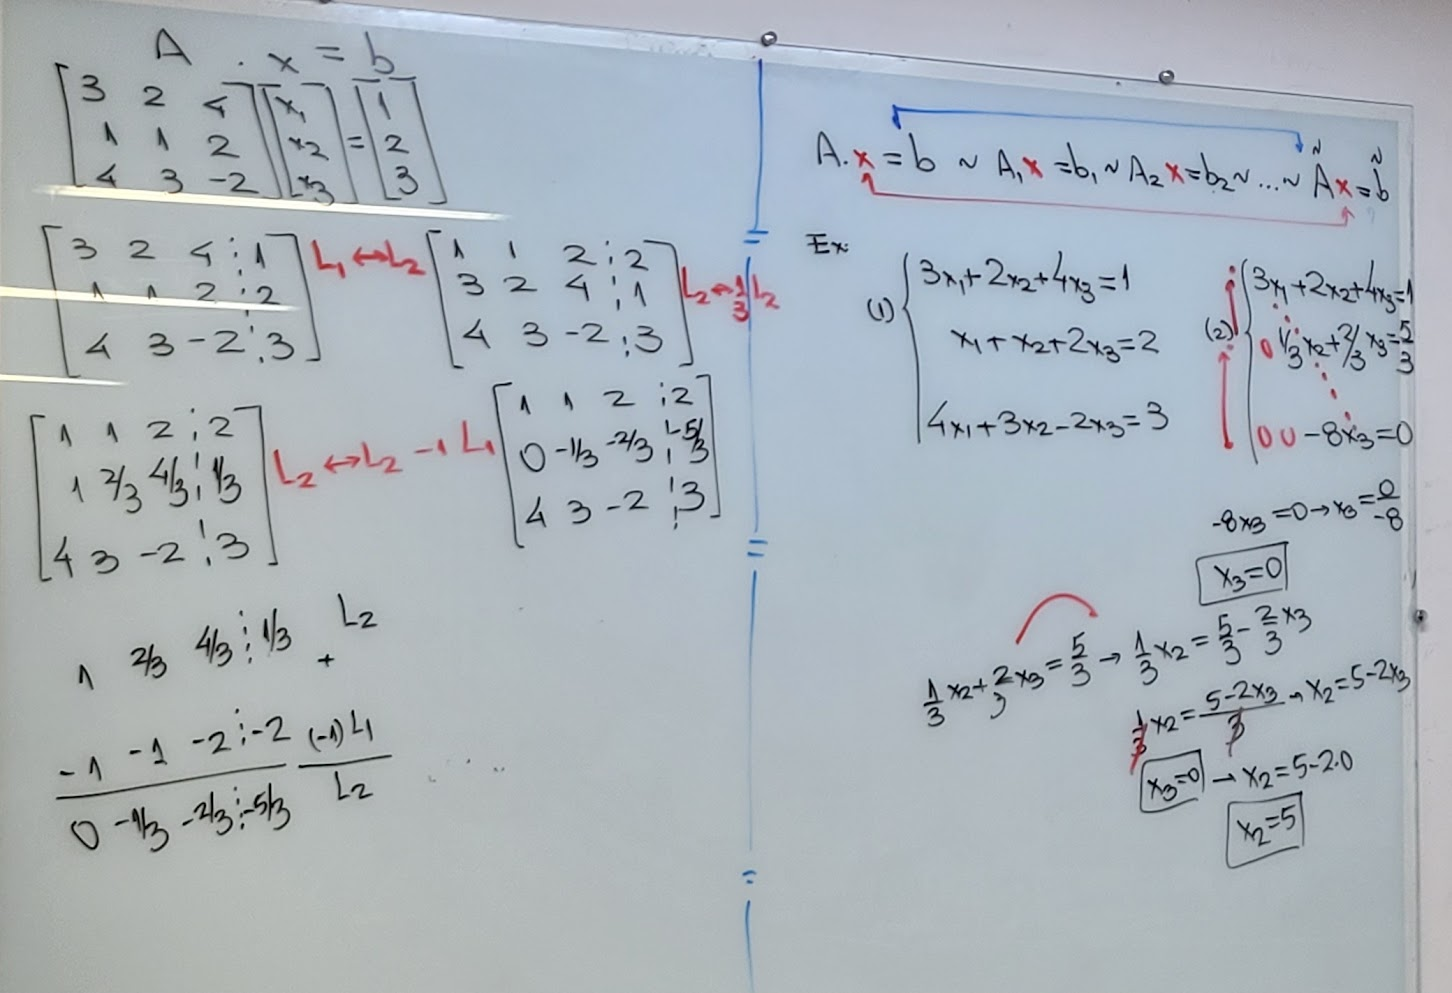 A . x = b
[3 2 4] [x₁] = [1]
[1 1 2] [x₂] = [2]
[4 3 -2] [x₃] = [3]
[3 2 4 ⋮ 1] L₁ ↔ L₂ [1 1 2 ⋮ 2] L₂ ← 1/3 L₂
[1 1 2 ⋮ 2] [3 2 4 ⋮ 1]
[4 3 -2 ⋮ 3] [4 3 -2 ⋮ 3]
[1 1 2 ⋮ 2] L₂ ↔ L₂ - 1 L₁ [1 1 2 ⋮ 2]
[1 2/3 4/3 ⋮ 1/3] [0 -1/3 -2/3 ⋮ -5/3]
[4 3 -2 ⋮ 3] [4 3 -2 ⋮ 3]
1 2/3 4/3 ⋮ 1/3 + L₂
-1 -1 -2 ⋮ -2 (-1) L₁
0 -1/3 -2/3 ⋮ -5/3 L₂
A.x = b ~ A₁x = b₁ ~ A₂x = b₂ ~ ... ~ Ãx = b̃
Ex:
(1) { 3x₁+2x₂+4x₃=1
x₁+x₂+2x₃=2
4x₁+3x₂-2x₃=3
(2) { 3x₁+2x₂+4x₃=1
0 1/3x₂+2/3x₃=5/3
0 0 -8x₃=0
-8x₃=0 → x₃=0/-8
x₃=0
1/3x₂+2/3x₃=5/3 → 1/3x₂=5/3-2/3x₃
1/3x₂=(5-2x₃)/3 → x₂=5-2x₃
x₃=0 → x₂=5-2.0
x₂=5